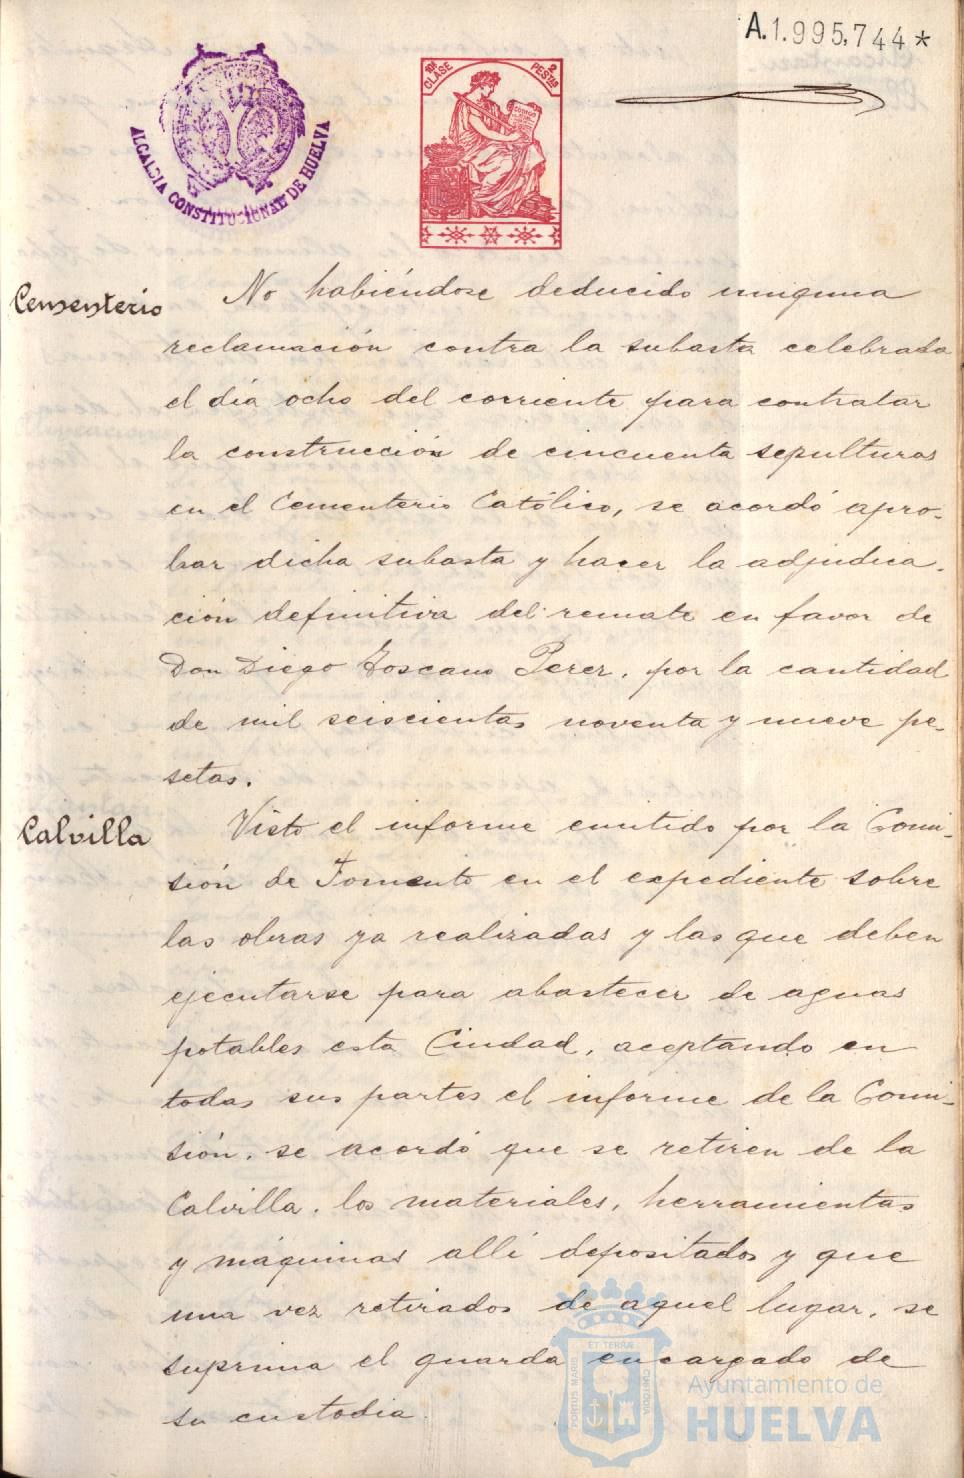 A.1.995,744*
10ª CLASE 2 PESTAS
ALCALDIA CONSTITUCIONAL DE HUELVA
Cementerio
No habiéndose deducido ninguna
reclamación contra la subasta celebrada
el día ocho del corriente para contratar
la construcción de cincuenta sepulturas
en el Cementerio Católico, se acordó apro-
bar dicha subasta y hacer la adjudica-
ción definitiva del remate en favor de
Don Diego Toscano Perez, por la cantidad
de mil seiscientas noventa y nueve pe-
setas.
Calvilla
Visto el informe emitido por la Comi-
sión de Fomento en el expediente sobre
las obras ya realizadas y las que deben
ejecutarse para abastecer de aguas
potables esta Ciudad, aceptando en
todas sus partes el informe de la Comi-
sión, se acordó que se retiren de la
Calvilla, los materiales, herramientas
y máquinas allí depositados y que
una vez retirados de aquel lugar, se
suprima el guarda encargado de
su custodia.
PORTUS MARIS ET TERRAE CUSTODIA
Ayuntamiento de
HUELVA